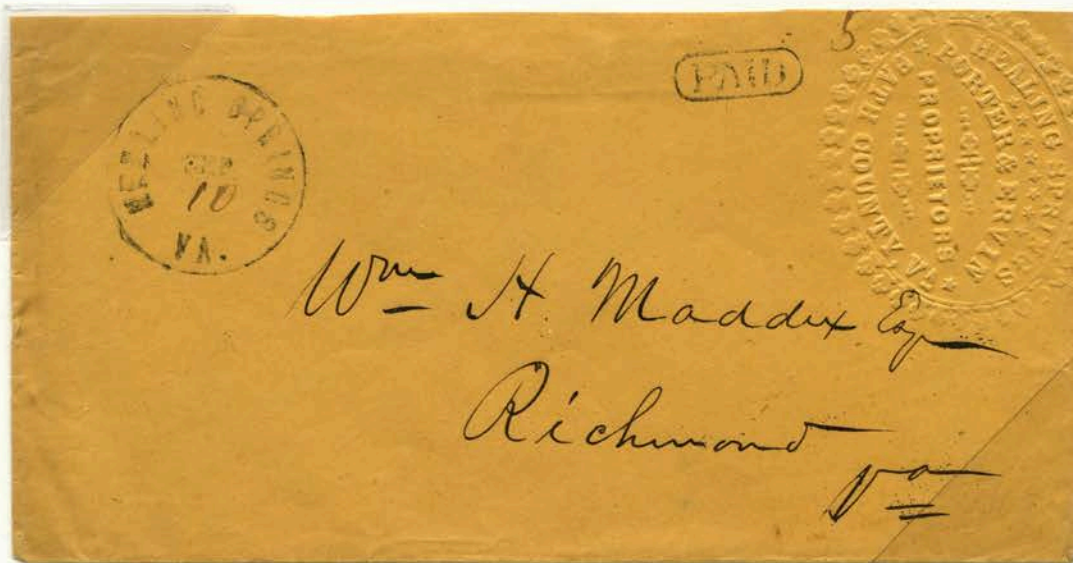 5
PAID
HEALING SPRINGS
10
VA.
HEALING SPRINGS
PORTER & ERVIN
PROPRIETORS
BATH COUNTY VA
Wm H. Maddux Esq
Richmond
Va